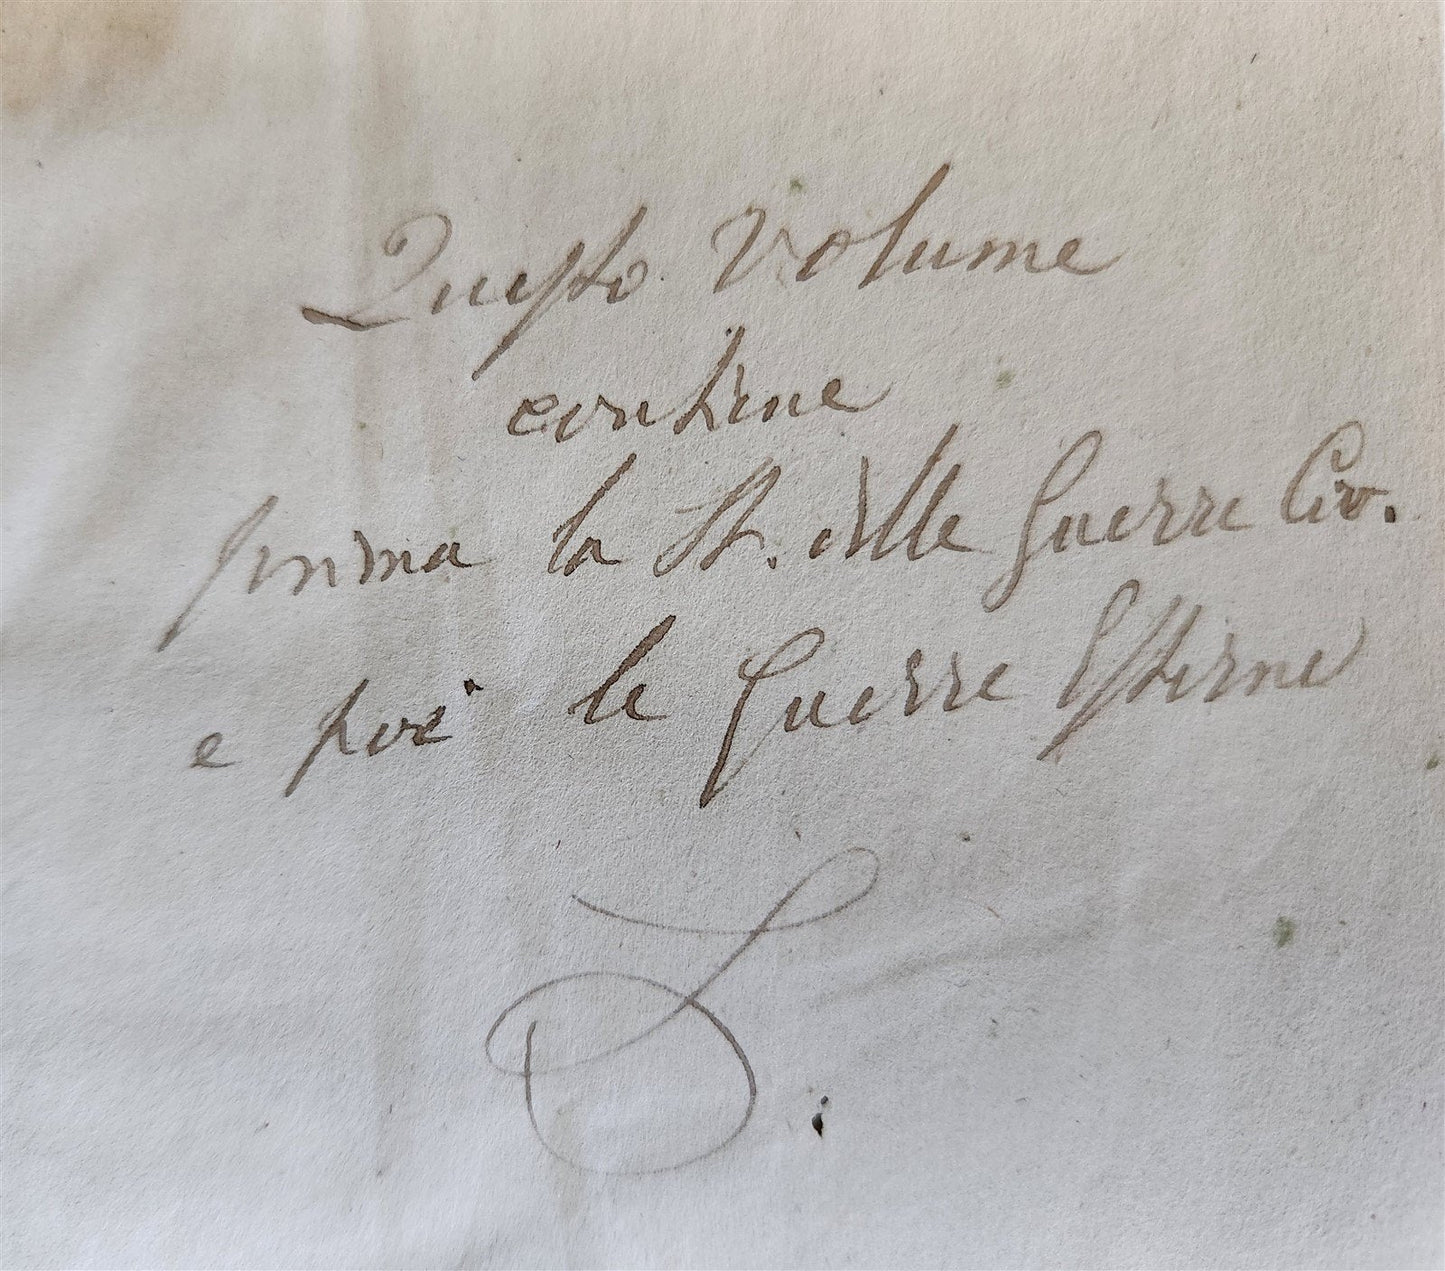 Questo Volume
contiene
prima la St. delle Guerre Civ.
e poi le Guerre Esterne